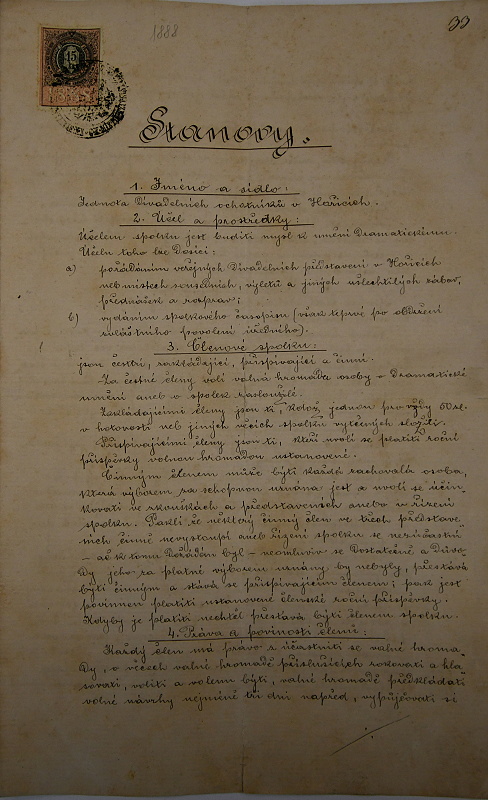 1888
33
15
Stanovy.
1. Jméno a sídlo:
Jednota Divadelních ochotníků v Hořicích.
2. Účel a prostředky:
Účelem spolku jest buditi mysl k umění Dramatickému.
Účelu toho lze Dosíci:
a) pořádáním veřejných Divadelních představení v Hořicích
neb místech sousedních, výletů a jiných ušlechtilých zábav,
přednášek a rozprav;
b) vydáním spolkového časopisu (však teprvé po obdržení
zvláštního povolení úředního).
3. Členové spolku:
jsou čestní, zakládající, přispívající a činní.
Za čestné členy volí valná hromada osoby o Dramatické
umění aneb o spolek zasloužilé.
Zakládajícími členy jsou ti, kdož jednou pro vždy 50 zl.
v hotovosti neb jiných věcích spolku výtečných složí.
Přispívajícími členy jsou ti, kteří uvolí se platiti roční
příspěvky valnou hromadou ustanovené.
Činným členem může býti každá zachovalá osoba,
která výborem za schopnou uznána jest a uvolí se účin-
kovati ve zkouškách a představeních anebo v řízení
spolku. Pakli že některý činný člen ve třech představe-
ních činně nevystoupí aneb řízení spolku se nezúčastní
– ač k tomu Požádán byl – neomluviv se Dostatečně a Důvo-
Dy jeho za platné výborem uznány by nebyly, přestává
býti činným a stává se přispívajícím členem; pak jest
povinnen platiti ustanovené členské roční příspěvky.
Kdyby je platiti nechtěl přestává býti členem spolku.
4. Práva a povinosti členů:
Každý člen má právo zúčastniti se valné hroma-
Dy, o věcech valné hromadě příslušících rokovati a hla-
sovati, voliti a volenu býti, valné hromadě předkládati
volné návrhy nejméně tři dni napřed, vypůjčovati si